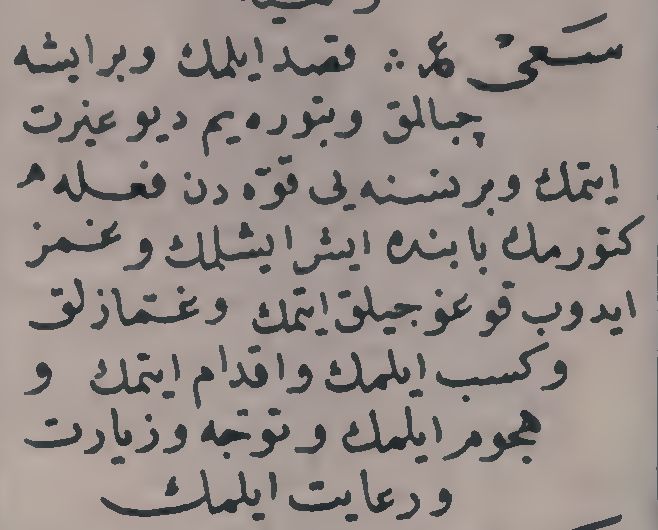 سعی ع قصد ایلمك وبر ایشه
چبالمق وبتوره یم دیو عیرت
ایتمك وبر نسنه یی قوّه دن فعله
كتورمك بابنده ایش ایشلمك وغمز
ایدوب قوغوجیلق ایتمك وغمازلق
وكسب ایلمك واقدام ایتمك و
هجوم ایلمك وتوجه وزیارت
ورعایت ایلمك